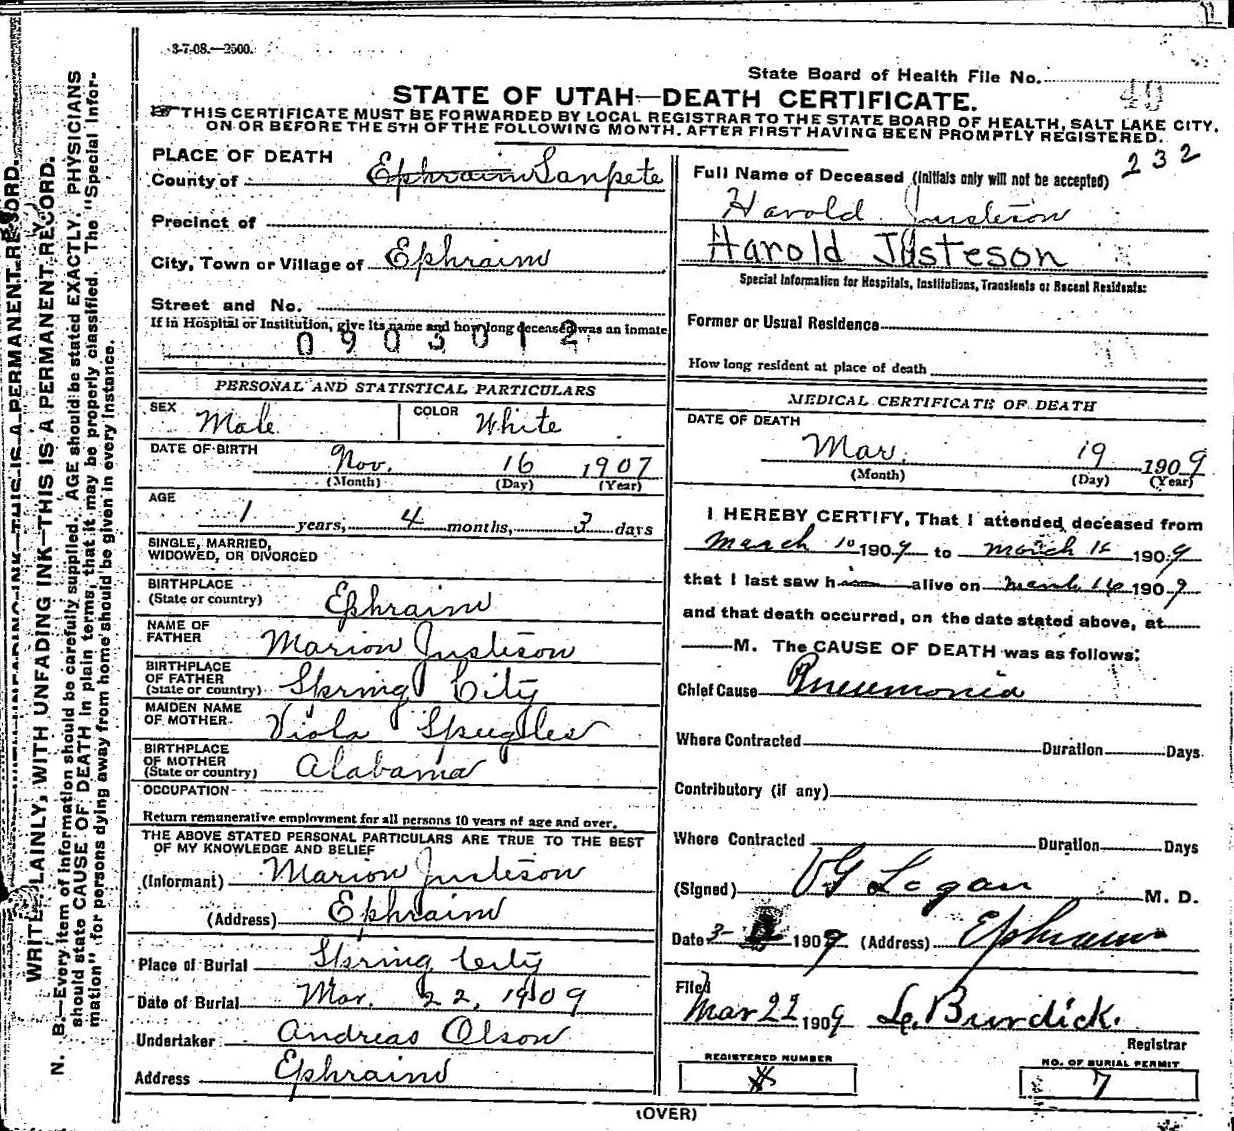 3-7-08.—2500.
State Board of Health File No.
40
STATE OF UTAH—DEATH CERTIFICATE.
THIS CERTIFICATE MUST BE FORWARDED BY LOCAL REGISTRAR TO THE STATE BOARD OF HEALTH, SALT LAKE CITY,
ON OR BEFORE THE 5TH OF THE FOLLOWING MONTH. AFTER FIRST HAVING BEEN PROMPTLY REGISTERED.
232
PLACE OF DEATH
County of Ephraim Sanpete
Precinct of
City, Town or Village of Ephraim
Street and No.
If in Hospital or Institution, give its name and how long deceased was an inmate
0903012
PERSONAL AND STATISTICAL PARTICULARS
SEX Male COLOR White
DATE OF BIRTH Nov. 16 1907
(Month) (Day) (Year)
AGE
1 years, 4 months, 3 days
SINGLE, MARRIED,
WIDOWED, OR DIVORCED
BIRTHPLACE
(State or country) Ephraim
NAME OF
FATHER Marion Justeson
BIRTHPLACE
OF FATHER
(State or country) Spring City
MAIDEN NAME
OF MOTHER Viola
BIRTHPLACE
OF MOTHER
(State or country) Alabama
OCCUPATION
Return remunerative employment for all persons 10 years of age and over.
THE ABOVE STATED PERSONAL PARTICULARS ARE TRUE TO THE BEST
OF MY KNOWLEDGE AND BELIEF
(Informant) Marion Justeson
(Address) Ephraim
Place of Burial Spring City
Date of Burial Mar. 22, 1909
Undertaker Andreas Olson
Address Ephraim
Full Name of Deceased (initials only will not be accepted)
Harold Justeson
Harold Justeson
Special Information for Hospitals, Institutions, Transients or Recent Residents:
Former or Usual Residence
How long resident at place of death
MEDICAL CERTIFICATE OF DEATH
DATE OF DEATH
Mar. 19 1909
(Month) (Day) (Year)
I HEREBY CERTIFY, That I attended deceased from
March 10 1909 to March 1909
that I last saw him alive on March 1909
and that death occurred, on the date stated above, at
M. The CAUSE OF DEATH was as follows:
Chief Cause Pneumonia
Where Contracted Duration Days
Contributory (if any)
Where Contracted Duration Days
(Signed) Logan M. D.
Date 3- 1909 (Address) Ephraim
Filed
Mar 22 1909 Burdick.
Registrar
REGISTERED NUMBER
NO. OF BURIAL PERMIT
7
(OVER)
WRITE PLAINLY, WITH UNFADING INK—THIS IS A PERMANENT RECORD.
N. B.—Every item of information should be carefully supplied. AGE should be stated EXACTLY. PHYSICIANS
should state CAUSE OF DEATH in plain terms, that it may be properly classified. The "Special Infor-
mation" for persons dying away from home should be given in every instance.